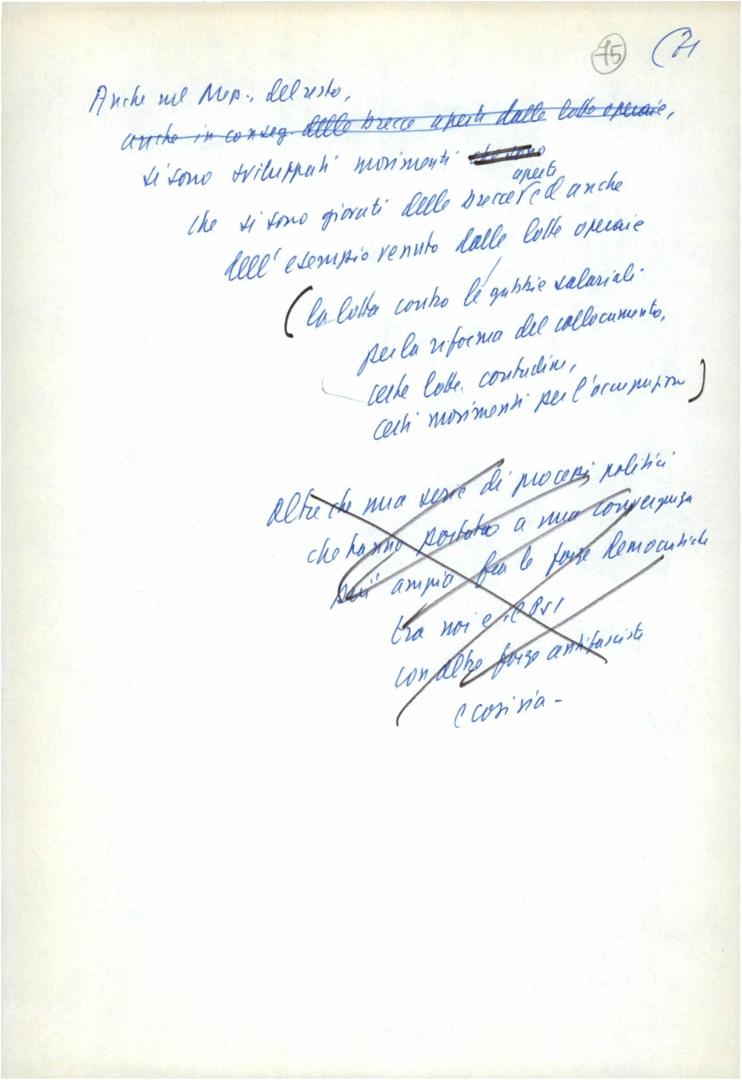 75 (21
Anche nel Mer., del resto,
anche in conseg. delle brecce aperte dalle lotte operaie,
si sono sviluppati movimenti che sono
aperte
che si sono giovati delle brecce ed anche
dell'esempio venuto dalle lotte operaie
(la lotta contro le gabbie salariali
per la riforma del collocamento,
certe lotte contadine,
certi movimenti per l'occupazione)
Oltre che una serie di processi politici
che hanno portato a una convergenza
più ampia fra le forze democratiche
tra noi e il PSI
con altre forze antifasciste
e così via -